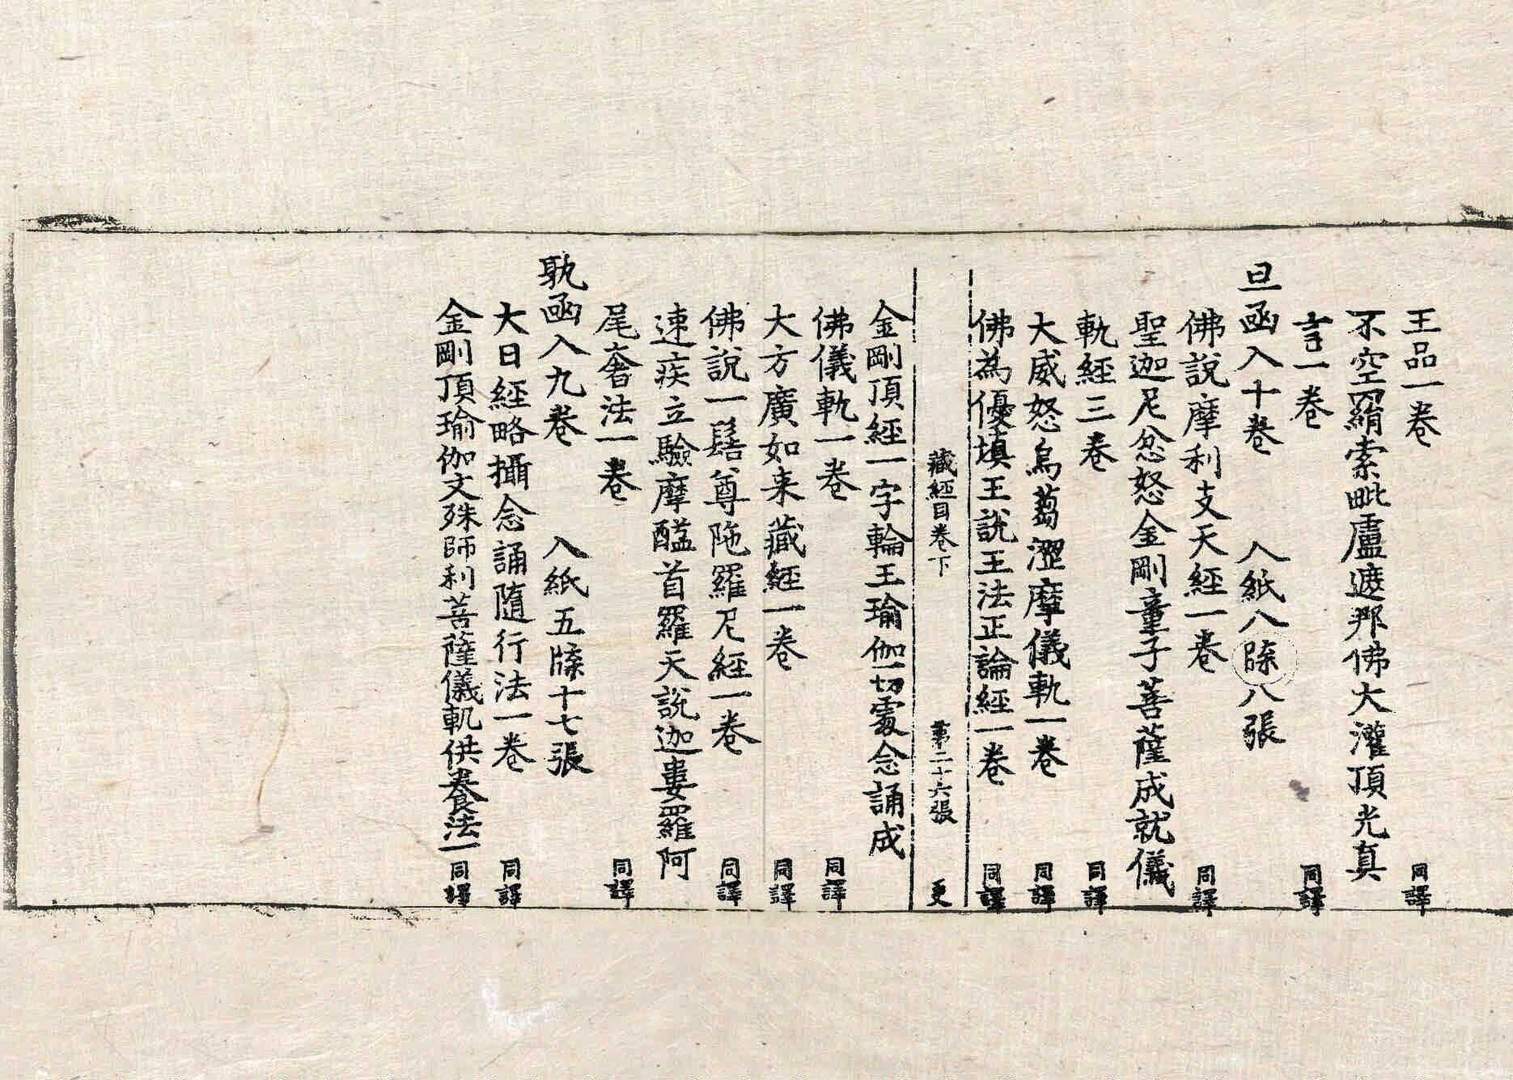 王品一卷 同譯
不空羂索毗盧遮那佛大灌頂光真
言一卷 同譯
旦函入十卷 入紙八牒八張
佛說摩利支天經一卷 同譯
聖迦尼忿怒金剛童子菩薩成就儀
軌經三卷 同譯
大威怒烏蒭澀摩儀軌一卷 同譯
佛為優填王說王法正論經一卷 同譯
藏經目卷下 第二十六張 更
金剛頂經一字輪王瑜伽一切處念誦成
佛儀軌一卷 同譯
大方廣如来藏經一卷 同譯
佛說一髻尊陁羅尼經一卷 同譯
速疾立驗摩醯首羅天說迦婁羅阿
尾奢法一卷 同譯
孰函入九卷 入紙五牒十七張
大日經略攝念誦隨行法一卷 同譯
金剛頂瑜伽文殊師利菩薩儀軌供養法一 同譯